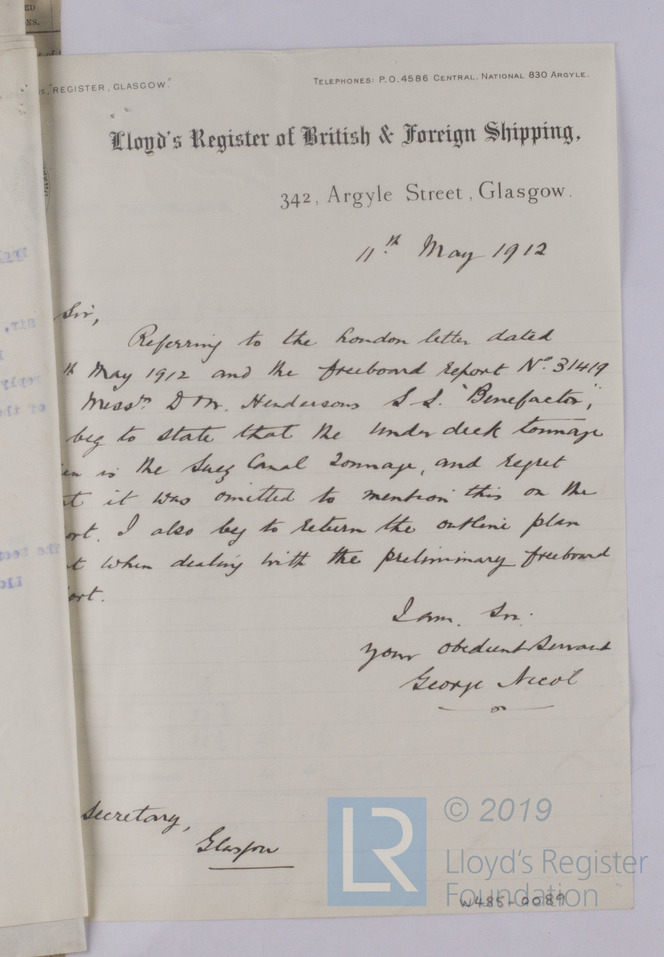 REGISTER, GLASGOW."
TELEPHONES: P.O. 4586 CENTRAL, NATIONAL 830 ARGYLE.
Lloyd's Register of British & Foreign Shipping,
342, Argyle Street, Glasgow.
11th May 1912
Sir,
Referring to the London letter dated
th May 1912 and the freeboard report No. 31419
Messrs D & W. Hendersons S.S. "Benefactor",
beg to state that the under deck tonnage
en is the Suez Canal Tonnage, and regret
t it was omitted to mention this on the
ort. I also beg to return the outline plan
t when dealing with the preliminary freeboard
ort.
I am, Sir,
your obedient Servant
George Nicol
Secretary,
Glasgow
LR © 2019
Lloyd's Register
Foundation
W485-0089